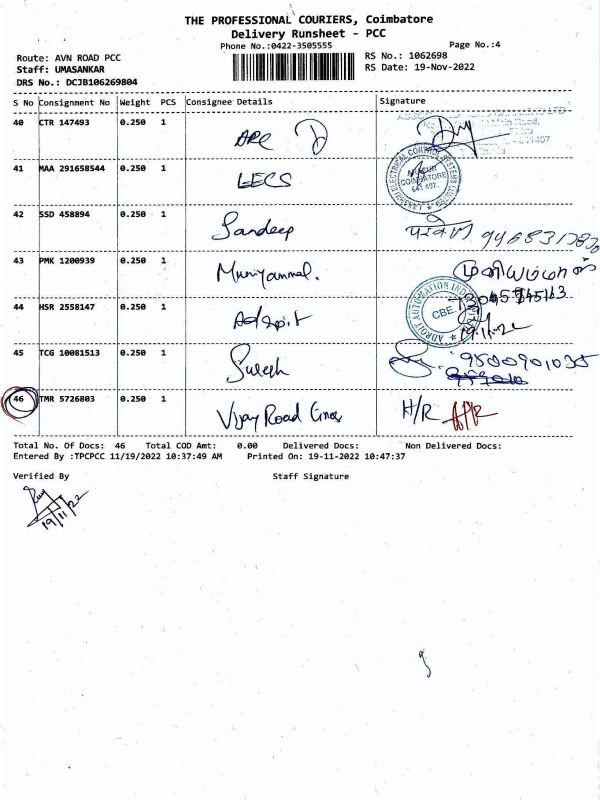 THE PROFESSIONAL COURIERS, Coimbatore
Delivery Runsheet - PCC
Phone No.:0422-3505555
Page No.:4
Route: AVN ROAD PCC
RS No.: 1062698
Staff: UMASANKAR
RS Date: 19-Nov-2022
DRS No.: DCJB106269804
S No Consignment No Weight PCS Consignee Details Signature
40 CTR 147493 0.250 1
41 MAA 291658544 0.250 1 LECS
COIMBATORE
641 407.
42 SSD 458894 0.250 1 Sandeep
43 PMK 1200939 0.250 1 Muniyammal. முனியம்மாள்
44 HSR 2558147 0.250 1 Adroit
ADROIT AUTOMATION
CBE.
19.11.22
45 TCG 10081513 0.250 1 Suresh
46 TMR 5726803 0.250 1 Vijay Road Lines H/R H/R
Total No. Of Docs: 46 Total COD Amt: 0.00 Delivered Docs: Non Delivered Docs:
Entered By :TPCPCC 11/19/2022 10:37:49 AM Printed On: 19-11-2022 10:47:37
Verified By Staff Signature
19/11/22